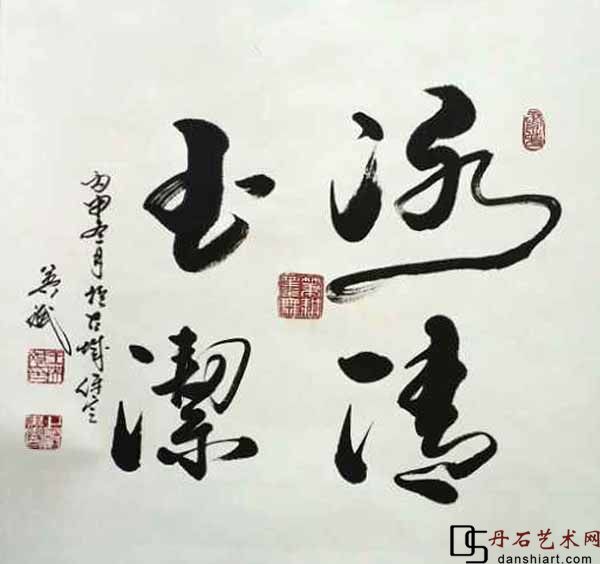 冰清
玉潔
丙申冬月於古城保定
DS 丹石艺术网
danshiart.com